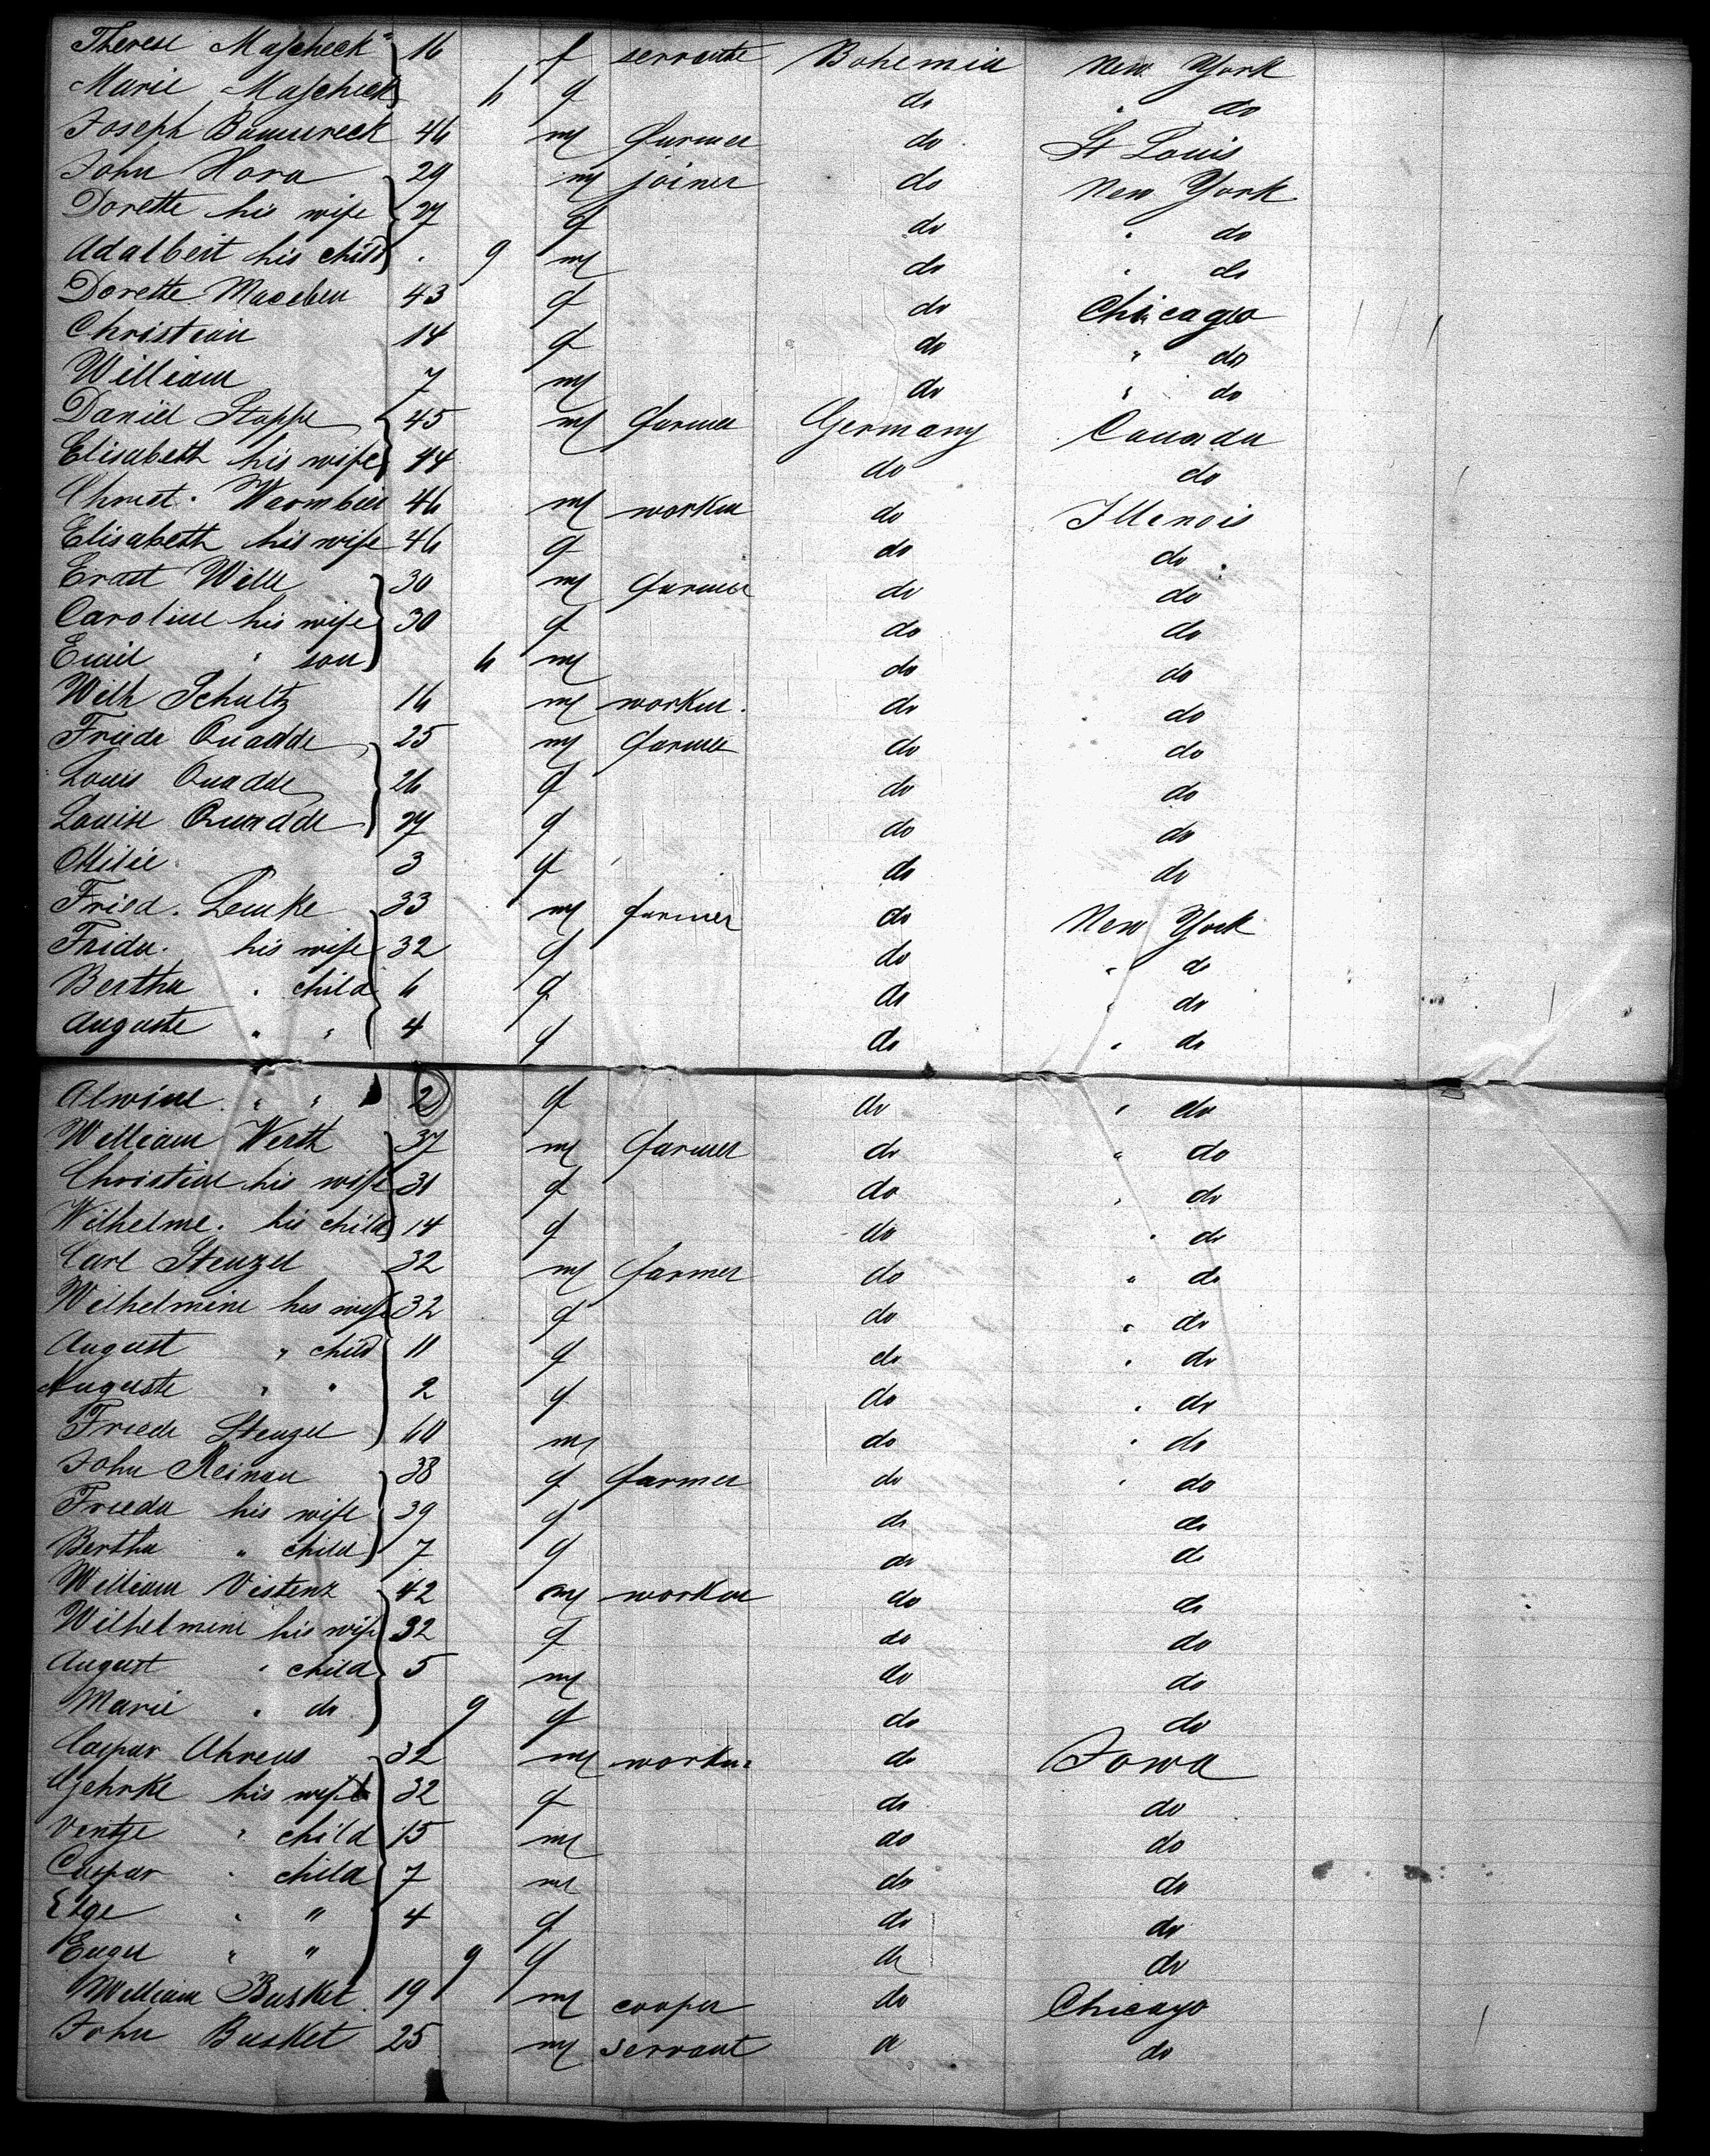 Therese Mascheck 16 f servante Bohemia New York
Marie Mascheck 6 f do " do
Joseph 46 m farmer do St Louis
John Hora 29 m joiner do New York
Dorette his wife 27 f do " do
Adalbert his child . 9 m do " do
Dorette 43 f do Chicago
Christian 14 f do " do
William 7 m do " do
Daniel Stappe 45 m farmer Germany Canada
Elisabeth his wife 44 do do
Christ. Warmbier 46 m worker do Illenois
Elisabeth his wife 46 f do do
Ernst Wille 30 m farmer do do
Caroline his wife 30 f do do
Emil " son 6 m do do
Wilh Schultz 16 m worker. do do
Friede Quadde 25 m farmer do do
Louis Quadde 26 f do do
Louise Quadde 27 f do do
Ottilie 3 f do do
Fried. Lemke 33 m farmer do New York
Frida. his wife 32 f do " do
Bertha " child 6 f do " do
Auguste " " 4 f do " do
Alwine " " 2 f do " do
William Werth 37 m farmer do " do
Christine his wife 31 f do " do
Wilhelme. his child 14 f do " do
Carl Stenzel 32 m farmer do " do
Wilhelmine his wife 32 f do " do
August " child 11 f do " do
Auguste " " 2 f do " do
Friede Stenzel 60 m do " do
John Reinau 38 f farmer do " do
Frieda his wife 39 f do do
Bertha " child 7 f do do
William Vistenz 42 m worker do do
Wilhelmine his wife 32 f do do
August " child 5 m do do
Marie " do 9 f do do
Caspar Ahrens 32 m worker do Iowa
Gehrke his wife 32 f do do
Ventje " child 15 m do do
Caspar " child 7 m do do
Elge " " 4 f do do
" " 9 f do do
William Busket 19 m cooper do Chicago
John Busket 25 m servant do do